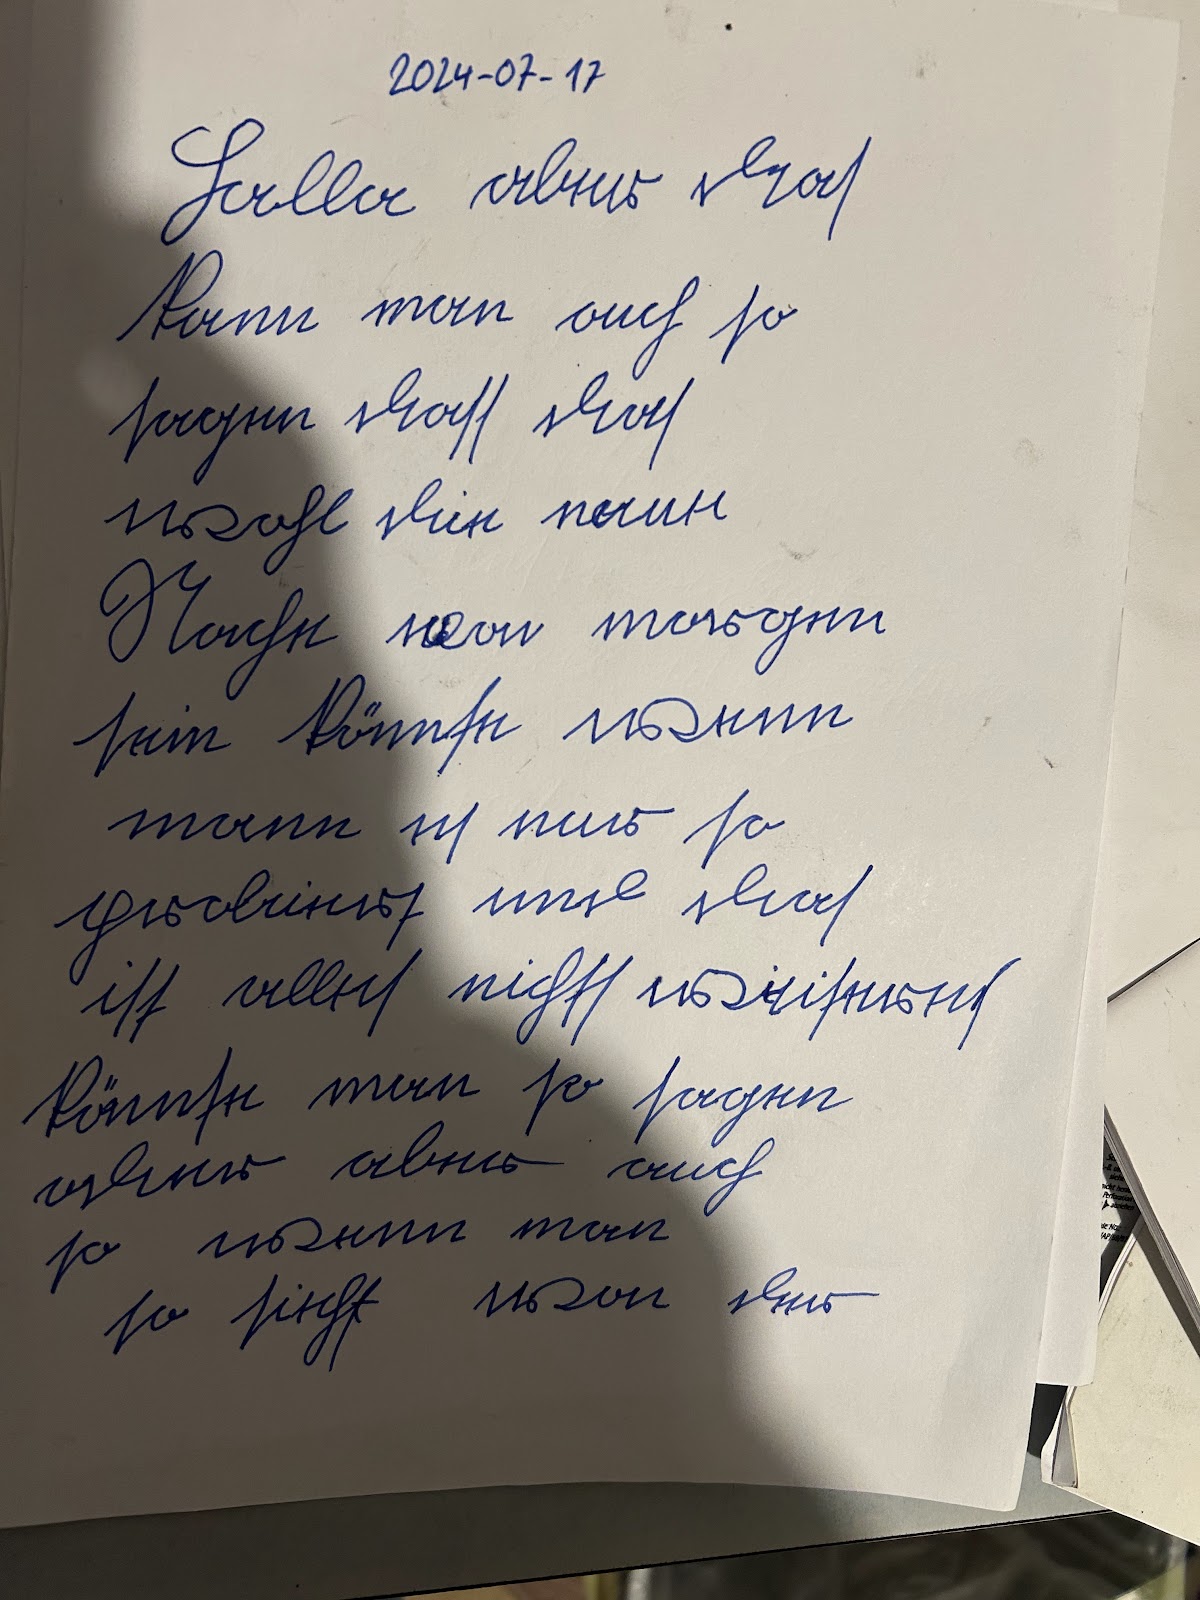 2024-07-17
Hallo aber das
kann man auch so
sagen dass das
wohl die neue
Mache von morgen
sein könnte wenn
mann es nur so
gebraucht und das
ist alles nichts weiteres
könnte man so sagen
oder aber auch
so wenn man
so sieht von der